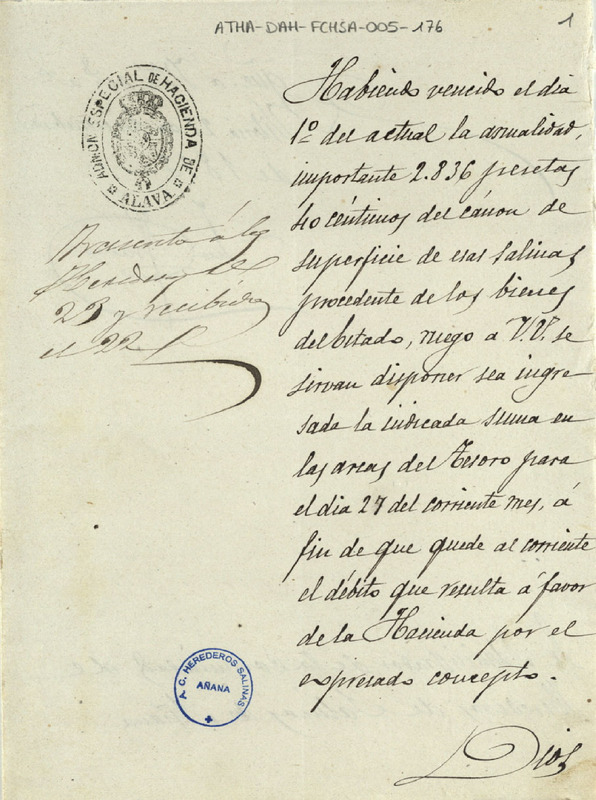 ATHA-DAH-FCHSA-005-176
1
ADMON ESPECIAL DE HACIENDA DE
ALAVA
Habiendo vencido el dia
1º del actual la anualidad,
importante 2.836 pesetas
40 céntimos del cánon de
superficie de esas salinas
procedente de los bienes
del Estado, ruego a V.V. se
sirvan disponer sea ingre
sada la indicada suma en
las arcas del Tesoro para
el dia 27 del corriente mes, á
fin de que quede al corriente
el débito que resulta á favor
de la Hacienda por el
expresado concepto.
Dios
á los
23 y recibida
el 22
A. C. HEREDEROS SALINAS
AÑANA